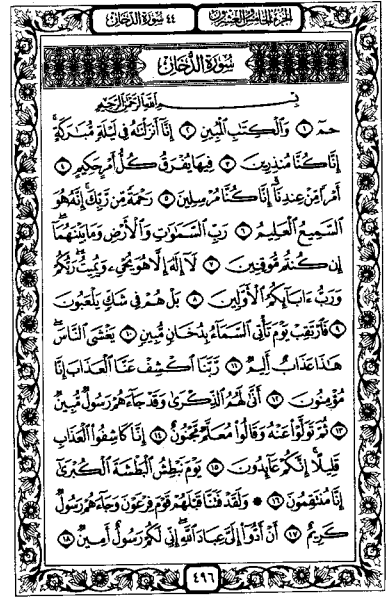 الجزء الخامس والعشرون
٤٤ سورة الدخان
سُورَةُ الدُّخَانِ
بِسْمِ اللَّهِ الرَّحْمَٰنِ الرَّحِيمِ
حمٓ ١ وَالْكِتَابِ الْمُبِينِ ٢ إِنَّا أَنزَلْنَاهُ فِي لَيْلَةٍ مُّبَارَكَةٍ ۚ
إِنَّا كُنَّا مُنذِرِينَ ٣ فِيهَا يُفْرَقُ كُلُّ أَمْرٍ حَكِيمٍ ٤
أَمْرًا مِّنْ عِندِنَا ۚ إِنَّا كُنَّا مُرْسِلِينَ ٥ رَحْمَةً مِّن رَّبِّكَ ۚ إِنَّهُ هُوَ
السَّمِيعُ الْعَلِيمُ ٦ رَبِّ السَّمَٰوَٰتِ وَالْأَرْضِ وَمَا بَيْنَهُمَا ۖ
إِن كُنتُم مُّوقِنِينَ ٧ لَا إِلَٰهَ إِلَّا هُوَ يُحْيِي وَيُمِيتُ ۖ رَبُّكُمْ
وَرَبُّ ءَابَآئِكُمُ الْأَوَّلِينَ ٨ بَلْ هُمْ فِي شَكٍّ يَلْعَبُونَ
٩ فَارْتَقِبْ يَوْمَ تَأْتِي السَّمَآءُ بِدُخَانٍ مُّبِينٍ ١٠ يَغْشَى النَّاسَ ۖ
هَٰذَا عَذَابٌ أَلِيمٌ ١١ رَّبَّنَا اكْشِفْ عَنَّا الْعَذَابَ إِنَّا
مُؤْمِنُونَ ١٢ أَنَّىٰ لَهُمُ الذِّكْرَىٰ وَقَدْ جَآءَهُمْ رَسُولٌ مُّبِينٌ
١٣ ثُمَّ تَوَلَّوْا عَنْهُ وَقَالُوا مُعَلَّمٌ مَّجْنُونٌ ١٤ إِنَّا كَاشِفُوا الْعَذَابِ
قَلِيلًا ۚ إِنَّكُمْ عَآئِدُونَ ١٥ يَوْمَ نَبْطِشُ الْبَطْشَةَ الْكُبْرَىٰ
إِنَّا مُنتَقِمُونَ ١٦ ۞ وَلَقَدْ فَتَنَّا قَبْلَهُمْ قَوْمَ فِرْعَوْنَ وَجَآءَهُمْ رَسُولٌ
كَرِيمٌ ١٧ أَنْ أَدُّوا إِلَيَّ عِبَادَ اللَّهِ ۖ إِنِّي لَكُمْ رَسُولٌ أَمِينٌ ١٨
٤٩٦